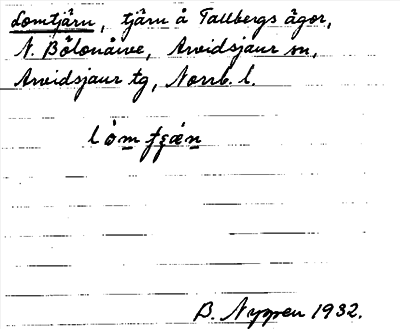 Lomtjärn, tjärn å Tallbergs ägor,
N. Bölonäive, Arvidsjaur sn,
Arvidsjaur tg, Norrb. l.
lòm
B. Nyppen 1932.